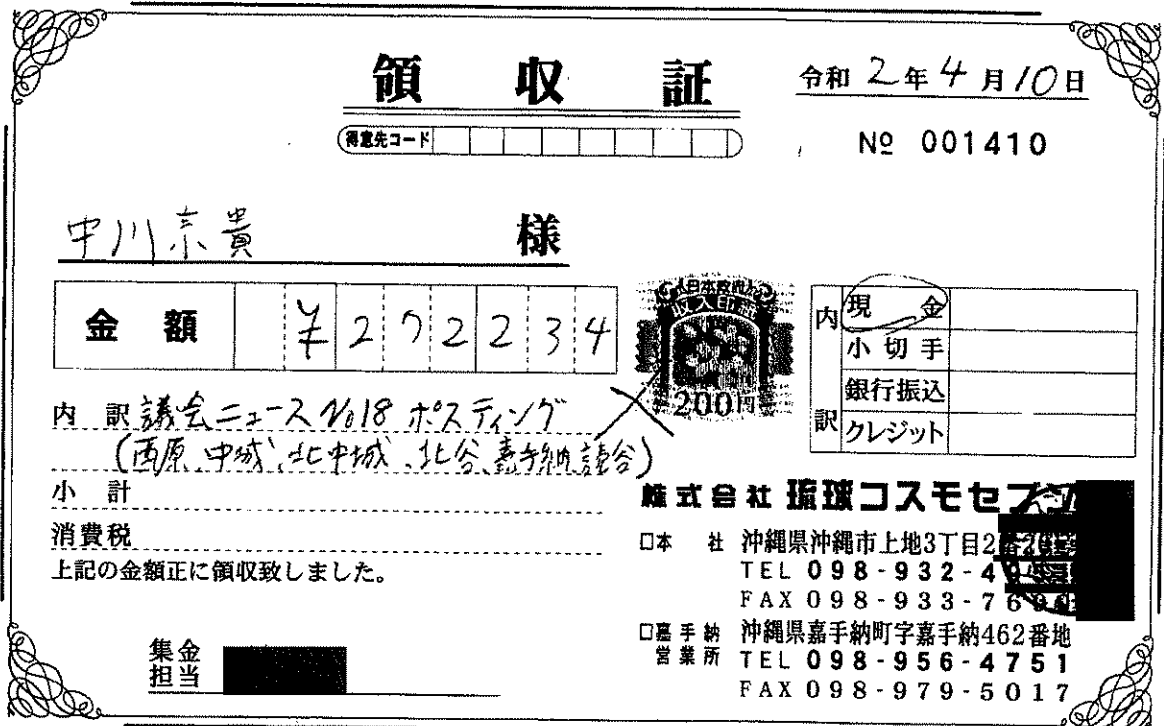 領収証
令和 2年 4月 10日
得意先コード
№ 001410
中川京貴 様
金額 ¥272234
日本政府
収入印紙
200円
内訳
現金
小切手
銀行振込
クレジット
内訳 議会ニュースNo18 ポスティング
(西原、中城、北中城、北谷、嘉手納、読谷)
小計
消費税
上記の金額正に領収致しました。
株式会社 琉球コスモセブン
□本社 沖縄県沖縄市上地3丁目2
TEL 098-932-4
FAX 098-933-76
□嘉手納営業所 沖縄県嘉手納町字嘉手納462番地
TEL 098-956-4751
FAX 098-979-5017
集金担当